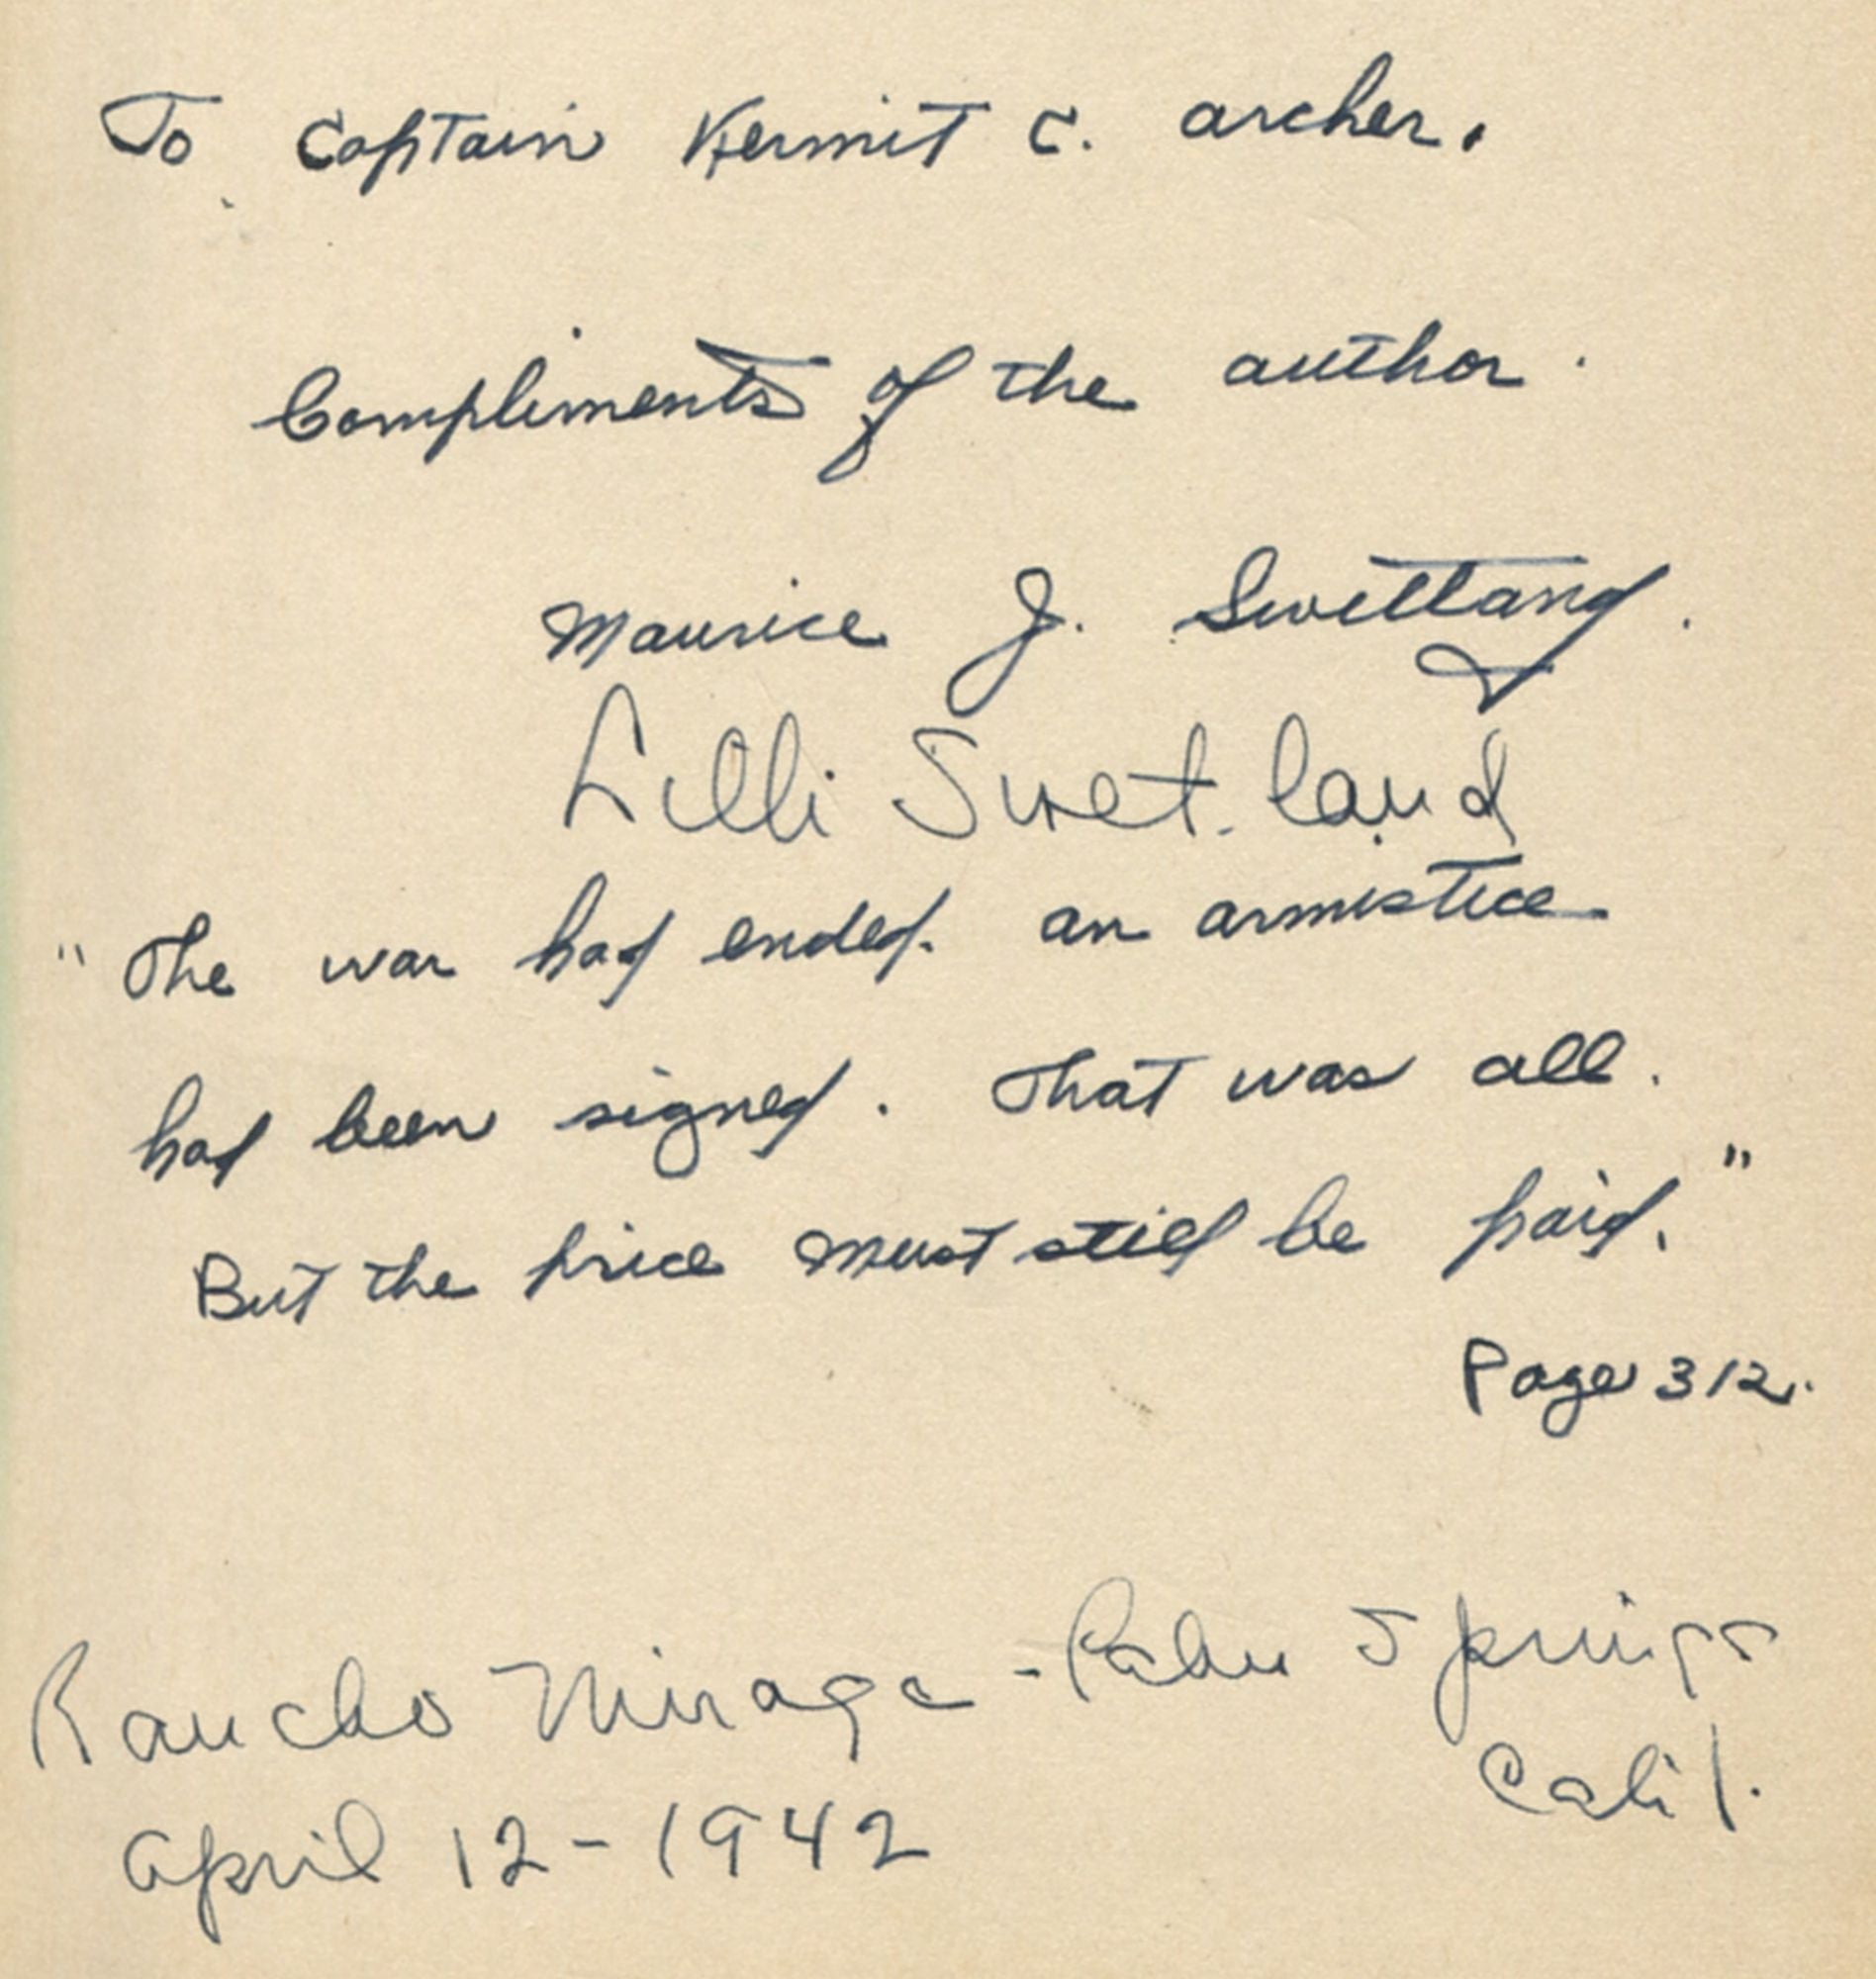 To Captain Kermit C. archer.
Compliments of the author.
Maurice J. Swetland.
Lilli Swet-land
"The war had ended. an armistice
had been signed. That was all.
But the price must still be paid."
Page 312.
Rancho Mirage - Palm Springs
Calif.
April 12-1942